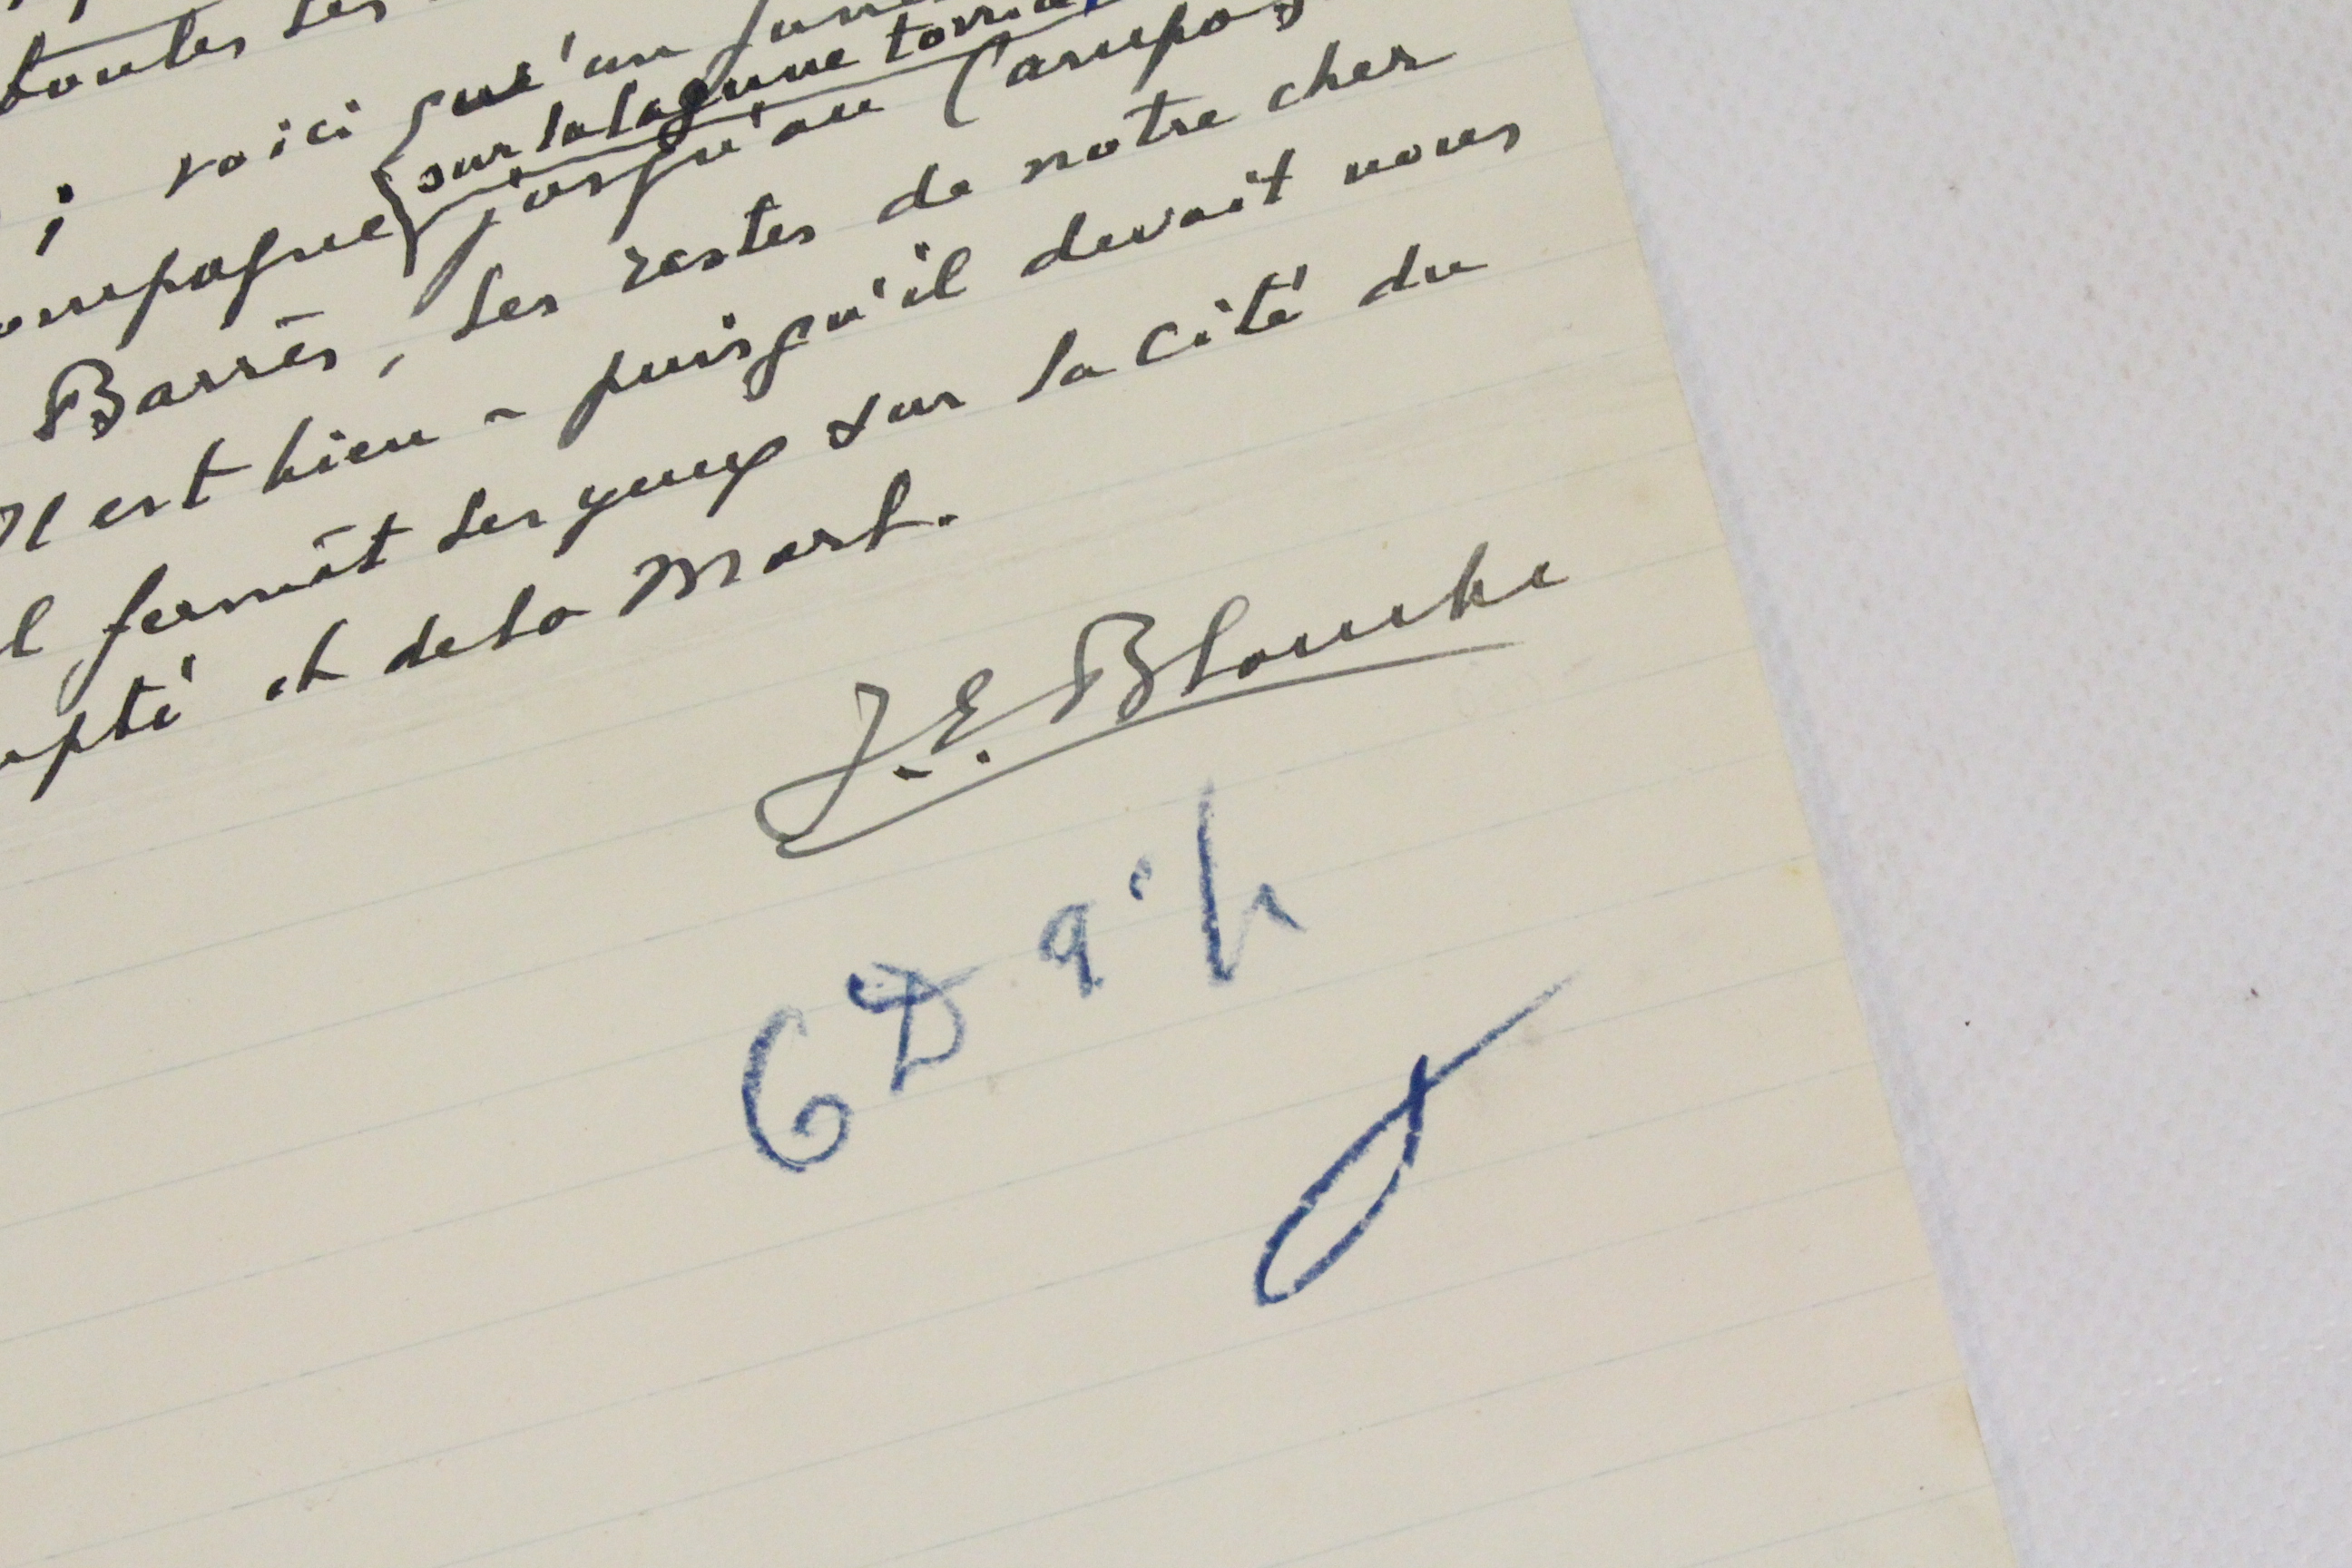 toutes les
; voici qu'un
sur la lagune
jusqu'au Campo
Barrès, les restes de notre cher
Il est bien - puisqu'il devait nous
fermât les yeux sur la cité du
et de la Mort.
J.E. Blanche
6D